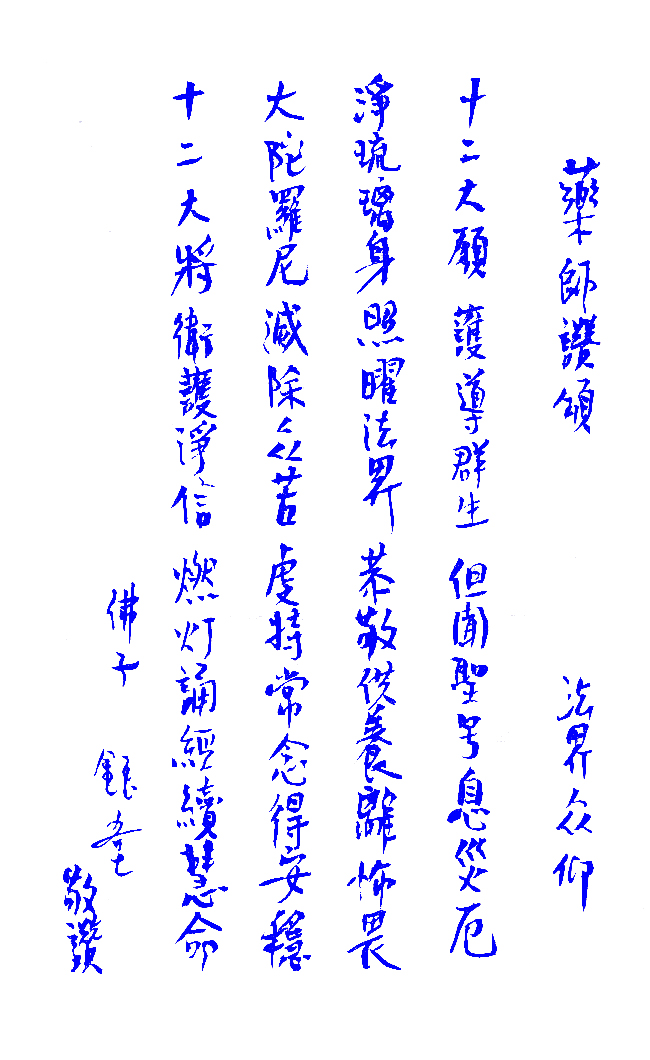 藥師讚頌 法界众仰
十二大願 護導群生 但聞聖号息災厄
淨琉璃身 照曜法界 恭敬供養離怖畏
大陀羅尼 滅除众苦 虔持常念得安穩
十二大將 衛護淨信 燃灯誦經續慧命
佛子
敬讚